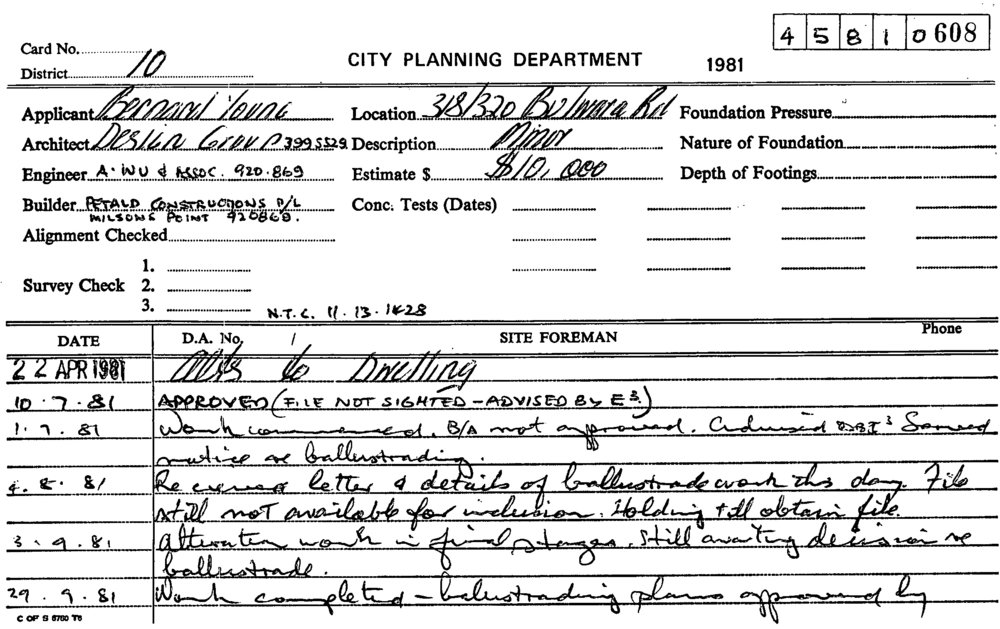 4 5 8 1 0 608
Card No.
District 10
CITY PLANNING DEPARTMENT
1981
Applicant Bernard Young
Location 318/320 Bulwara Rd
Foundation Pressure
Architect Design Group 399 5529
Description Minor
Nature of Foundation
Engineer A. WU & ASSOC. 920.869
Estimate $ $10,000
Depth of Footings
Builder PETALD CONSTRUCTIONS P/L
MILSONS POINT 920869.
Conc. Tests (Dates)
Alignment Checked
1.
Survey Check 2.
3.
N.T.C. 11.13.1428
DATE D.A. No. / SITE FOREMAN Phone
22 APR 1981 Alts to Dwelling
10.7.81 APPROVED (FILE NOT SIGHTED - ADVISED BY E3.)
1.7.81 Work commenced. B/A not approved. DBI3 Served
notice re ballustrading.
4.8.81 Received letter & details of ballustrade work this day. File
still not available for inclusion. Holding till obtain file.
3.9.81 Alteration work in final stages. Still awaiting decision re
ballustrade.
29.9.81 Work completed - balustrading plans approved by
C OF S 6760 T6